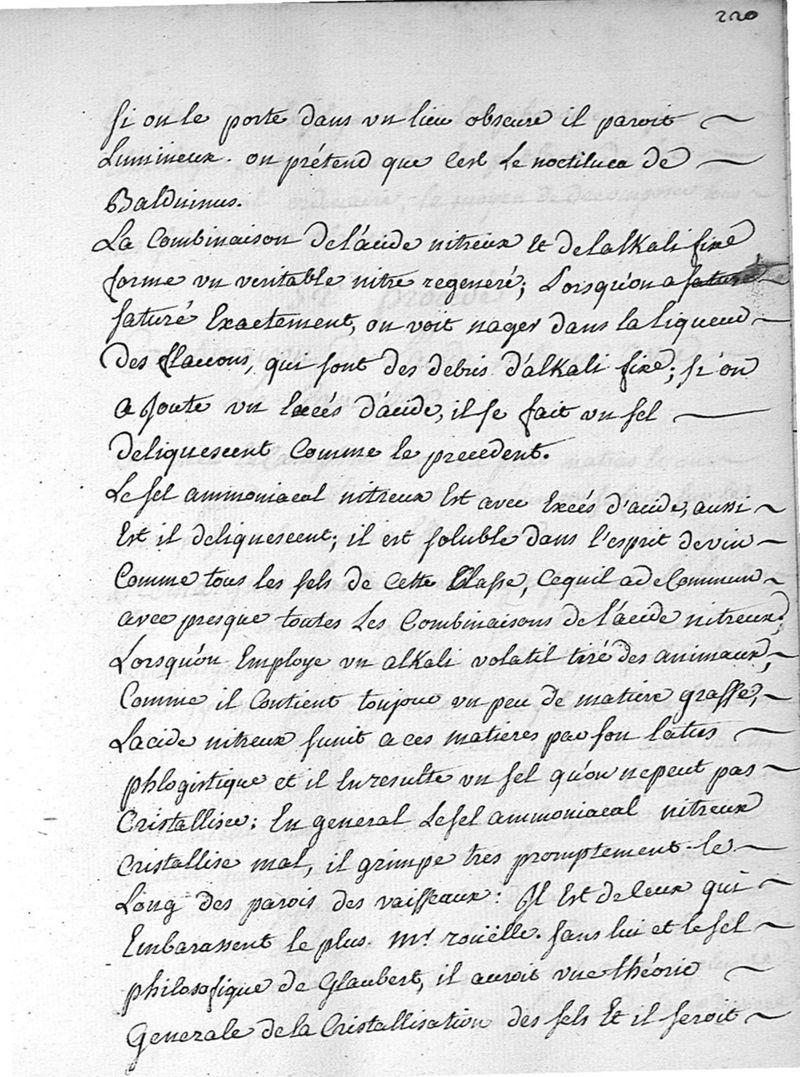 220
si on le porte dans un lieu obscure il paroit ~
Lumineux. on prétend que C'est Le noctiluca de —
Balduinus.
La Combinaison de l'ácide nitreux et de lalkali fixe
forme un veritable nitre regeneré; Lorsqu'on a saturé
saturé Exactement, on voit nager dans la liqueur ~
des flaccons, qui sont des debris d'alkali fixe; si on
a Joute un Excés d'ácide, il se fait un sel —
deliquescent Comme le precedent.
Le sel ammoniacal nitreux Est avec Excés d'acide, aussi ~
Est il deliquescent; il est soluble dans l'esprit de vin ~
Comme tous les sels de Cette Classe, Cequil a de Commun ~
avec presque toutes Les Combinaisons de l'ácide nitreux;
Lorsqu'on Employe un alkali volatil tiré des animaux, ~
Comme il Contient toujour un peu de matiere grasse, ~
Lacide nitreux sunit a ces matieres par son latus ~
phlogistique et il En resulte un sel qu'on ne peut pas ~
Cristalliser; En general Le sel ammoniacal nitreux
Cristallise mal, il grimpe tres promptement le ~
Long des parois des vaisseaux: Il Est de Ceux qui ~
Embarassent le plus. Mr. roüelle. sans lui et le sel ~
philosofique de Glaubert, il auroit une théorie ~
Generale de la Cristallisation des sels Et il seroit ~